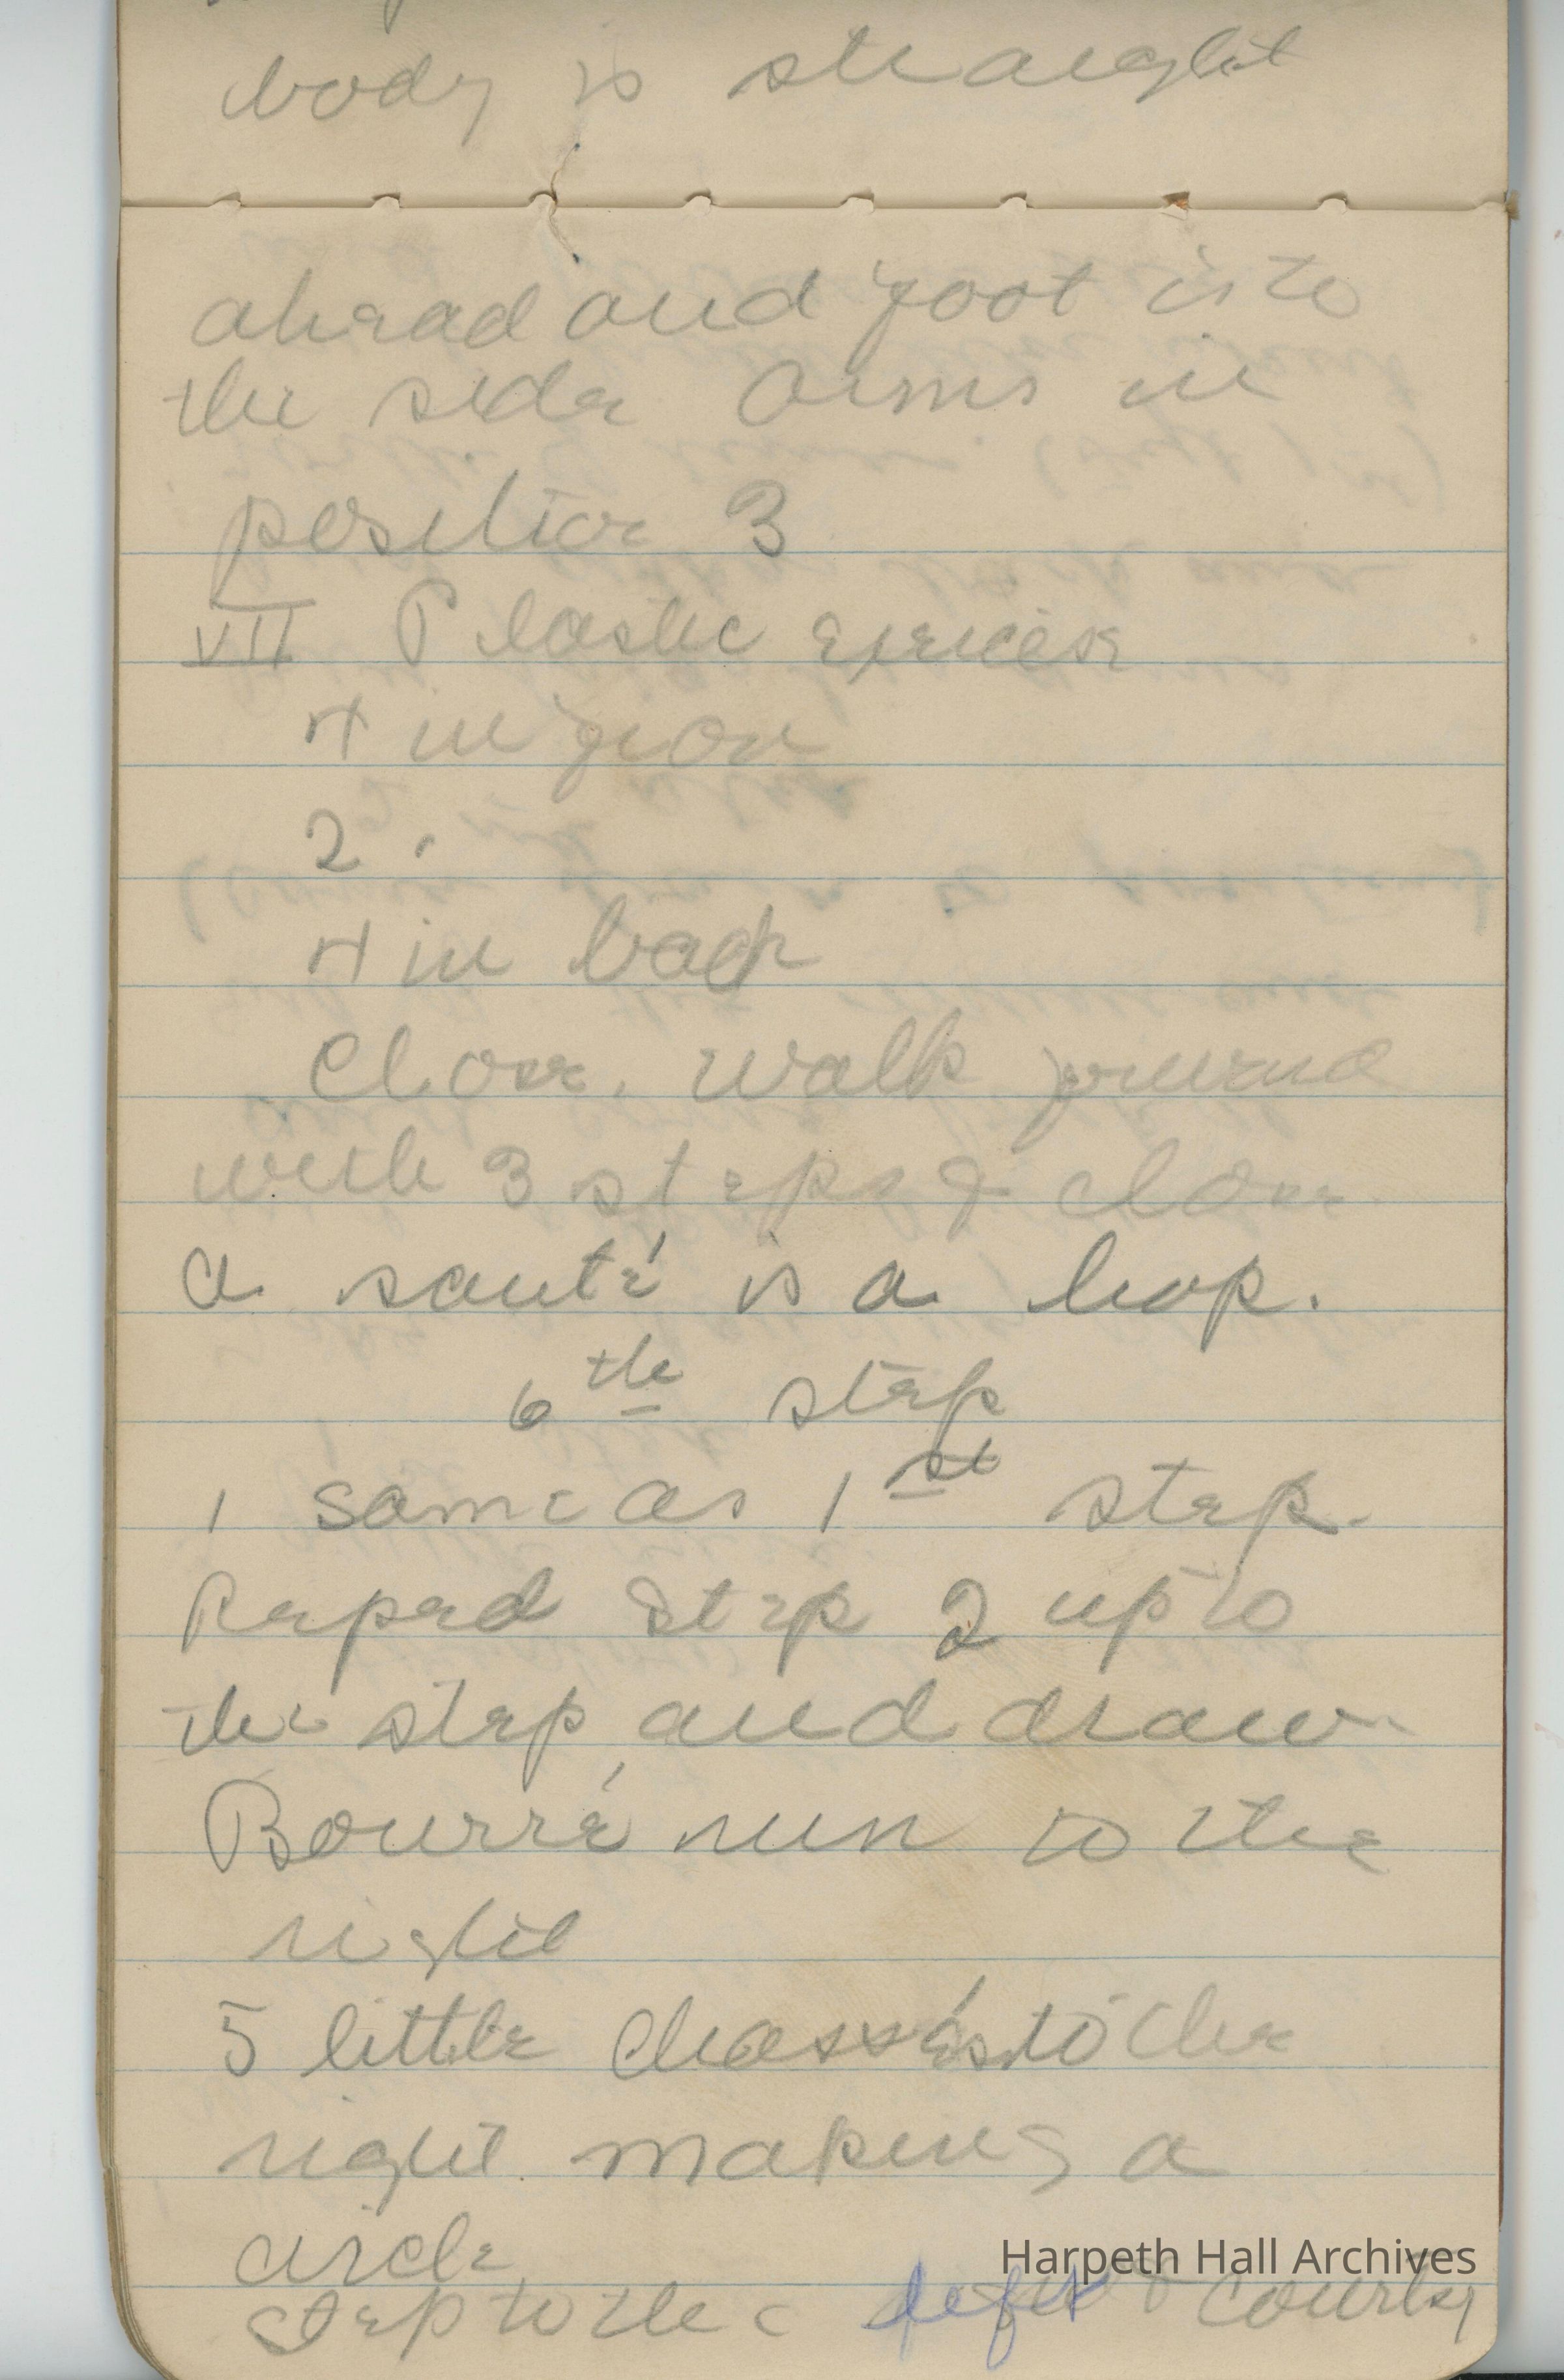 body is straight
ahead and foot is to
the side Arms in
position 3
VII Plastic exercise
4 in fron
2 "
4 in back
Close. walk forward
with 3 steps & close
a sauté is a hop.
6th step
1 same as 1st step.
Repead Step 2 up to
the step, and draw
Bourré run to the
right
5 little Chassés to the
right making a
circle
Step to the left & courtsy
Harpeth Hall Archives